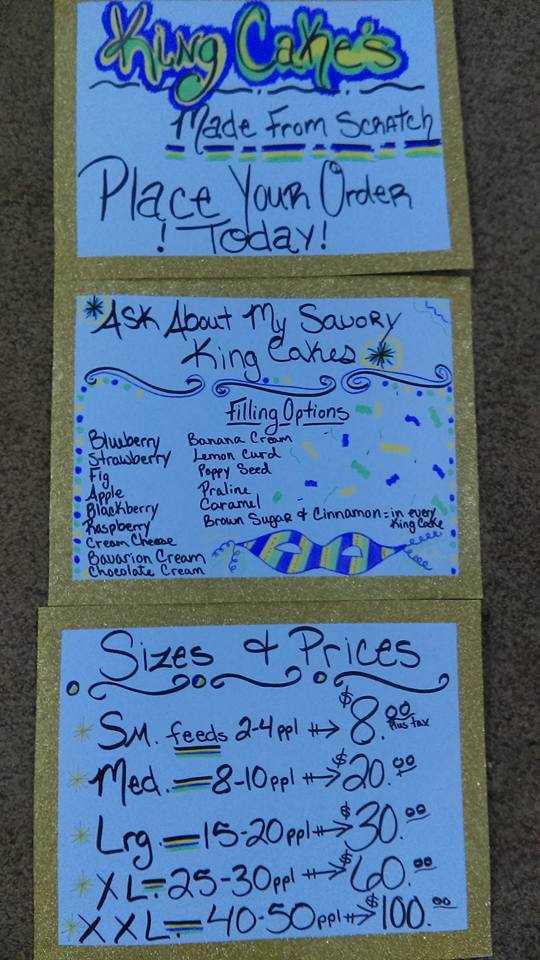 King Cake's
Made From Scratch
Place Your Order
! Today!
Ask About My Savory
King Cakes
Filling Options
Blueberry
Strawberry
Fig
Apple
Blackberry
Raspberry
Cream Cheese
Bavarion Cream
Chocolate Cream
Banana Cream
Lemon Curd
Poppy Seed
Praline
Caramel
Brown Sugar & Cinnamon = in every
King Cake
Sizes & Prices
Sm. feeds 2-4 ppl → $8.00
Plus tax
Med. = 8-10 ppl → $20.00
Lrg = 15-20 ppl → $30.00
XL = 25-30 ppl → $60.00
XXL = 40-50 ppl → $100.00